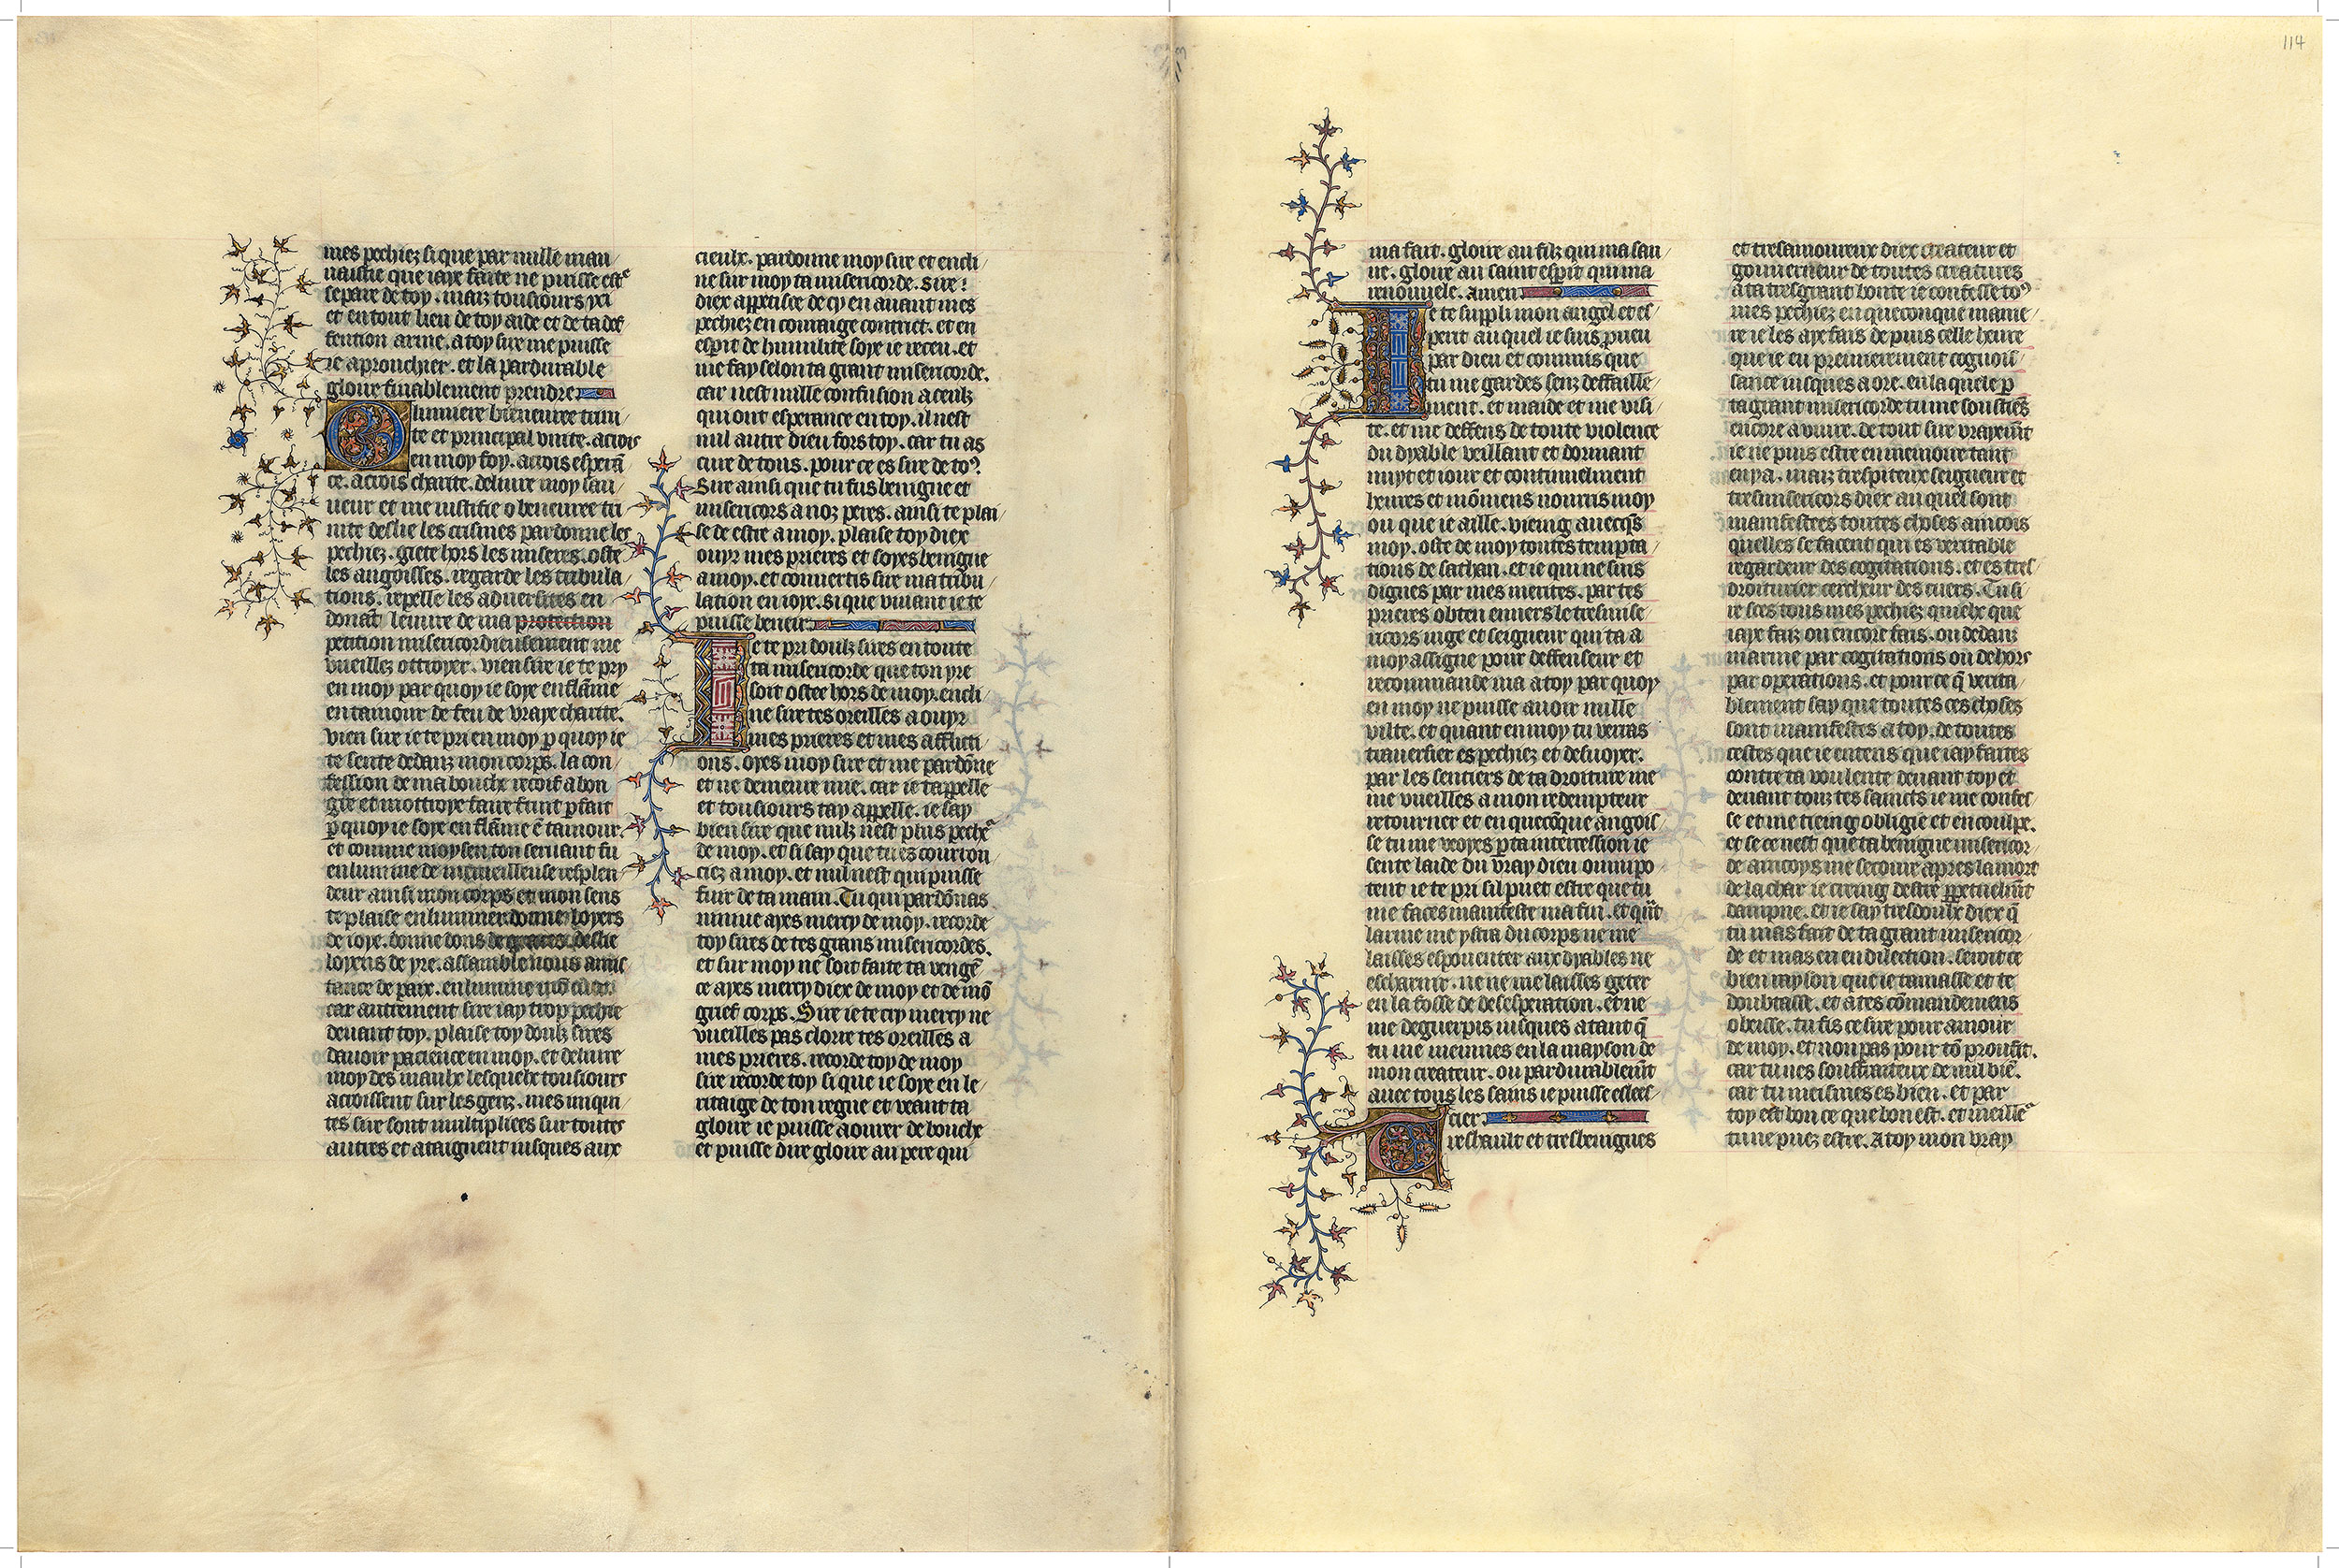 114
mes pechiez si que par nulle mau
uaistie que iaye faite ne puisse est
separe de toy. maiz tousiours yci
et en tout lieu de toy aide et de ta def
fention arme. a toy sire me puisse
ie aprouchier. et la pardurable
gloire finablement prendre
O lumiere bieneuree trini
te et principal unite. acrois
en moy foy. acrois esperā
ce. acrois charite. deliure moy sau
ueur et me iustifie o beneuree tri
nite deslie les crismes pardonne les
pechiez. giete hors les miseres. oste
les angoisses. regarde les tribula
tions. repelle les aduersites en
donāt leuure de ma protection
petition misericordieusement me
vueillez ottroyer. vien sire ie te pry
en moy par quoy ie soye enflāme
en tamour de feu de vraye charite.
vien sire ie te pri en moy p quoy ie
te sente dedanz mon corps. la con
fession de ma bouche recoif a bon
gre et mottroye faire frunt pfait
p quoy ie soye enflāme ē tamour.
et comme moysen ton seruant fu
enlumine de merueilleuse resplen
deur ainsi mon corps et mon sens
te plaise enluminer. donne loyers
de ioye. donne dons de graces. deslie
loyens de yre. assamble nous amis
tance de paix. enlumine mō cuer
car autrement sire iay trop pechie
deuant toy. plaise toy doulz sires
dauoir pacience en moy. et deliure
moy des maulx lesquelx tousiours
acroissent sur les genz. mes iniqui
tes sire sont multipliees sur toutes
autres et ataignent iusques aux
cieulx. pardonne moy sire et encli
ne sur moy ta misericorde. Sire
diex appetisce de cy en auant mes
pechiez en couraige contriet. et en
esprit de humilite soye ie receu. et
me fay selon ta grant misericorde.
car nest nulle confusion a ceulx
qui ont esperance en toy. il nest
nul autre dieu fors toy. car tu as
cure de tous. pour ce es sire de toꝰ.
Sire ainsi que tu fus benigne et
misericors a noz peres. ainsi te plai
se de estre a moy. plaise toy diex
ouyr mes prieres et soyes benigne
a moy. et conuertis sire ma tribu
lation en ioye. si que viuant ie te
puisse beneir
Ie te pri doulz sires en toute
ta misericorde que ton yre
soit ostee hors de moy. encli
ne sire tes oreilles a ouyr
mes prieres et mes afflicti
ons. oyes moy sire et me pardōne
et ne demeure mie. car ie tappelle
et tousiours tay appelle. ie say
bien sire que nulz nest plus peche
de moy. et si say que tu es courrou
ciez a moy. et nul nest qui puisse
fuir de ta main. Tu qui pardōnas
ninive ayes mercy de moy. recorde
toy sires de tes grans misericordes.
et sur moy ne soit faite ta vengē
ce ayes mercy diex de moy et de mō
grief corps. Sire ie te cry mercy ne
vueilles pas clorre tes oreilles a
mes prieres. recorde toy de moy
sire recorde toy si que ie soye en le
ritaige de ton regne et veant ta
gloire ie puisse aourer de bouche
et puisse dire gloire au pere qui
ma fait. gloire au filz qui ma sau
ue. gloire au saint esprit qui ma
renouuele. amen
Ie te suppli mon angel et es
perit au quel ie suis pueu
par dieu et commis que
tu me gardes senz deffaille
ment. et maide et me visi
te. et me deffens de toute violence
du dyable veillant et dormant
nuyt et iour et continuelment
heures et mōmens nourris moy
ou que ie aille. vieing auecqs
moy. oste de moy toutes tempta
tions de sathan. et ie qui ne suis
dignes par mes merites. par tes
prieres obtien enuers le tresmise
ricors iuge et seigneur qui ta a
moy assigne pour deffenseur et
recommande ma a toy par quoy
en moy ne puisse auoir nulle
vilte. et quant en moy tu verras
trauersier es pechiez et desuoyer.
par les sentiers de ta droiture me
me vueilles a mon redempteur
retourner et en quecōque angois
se tu me voyes p ta intercession ie
sente laide du vray dieu omnipo
tent ie te pri sil puet estre que tu
me faces manifeste ma fin. et qūt
larme me ystra du corps ne me
laisses espouenter aux dyables ne
escharnir. ne ne me laisses geter
en la fosse de desesperation. et ne
me deguerpis iusques a tant q̄
tu me meinnes en la mayson de
mon createur. ou pardurablemēt
auec tous les sains ie puisse eslees
cier.
Treshault et tresbenignes
et tresamoureux diex createur et
gouuerneur de toutes creatures
a ta tresgrant bonte ie confesse toꝰ
mes pechiez en queconque manie
re ie les aye fais de puis celle heure
que ie eu premierement cognois
sance iusques a ore. en la quele p
ta grant misericorde tu me soustiēs
encore a viure. de tout sire vrayemēt
ie ne puis estre en memoire tant
en ya. maiz trespiteux seigneur et
tresmisericors diex au quel sont
manifestees toutes choses aincois
quelles se facent qui es veritable
regardeur des cogitations. et es tres
droiturier cercheur des cuers. Tu si
ie sces tous mes pechiez quielx que
iaye faiz ou encore fais. ou dedanz
marme par cogitations ou dehors
par operations. et pour ce q̄ verita
blement say que toutes ces choses
sont manifestes a toy. de toutes
cestes que ie entens que iay faites
contre ta voulente deuant toy et
deuant touz tes saincts ie me confes
se et me tieing obligie et encoulpe.
et se ce nest que ta benigne misericor
de aincoys me sequeure apres la mort
de la char ie creing destre ppetuelmēt
dampne. et ie say tresdoulx diex q̄
tu mas fait de ta grant misericor
de et mas en en dilection. seroit ce
bien rayson que ie tamasse et te
doubtasse. et a tes cōmandemens
obeisse. tu fis ce sire pour amour
de moy. et non pas pour tō proufit.
car tu nes souffraiteux de nul biē.
car tu meismes es bien. et par
toy est bon ce que bon est. et meille
tu ne puez estre. A toy mon vray